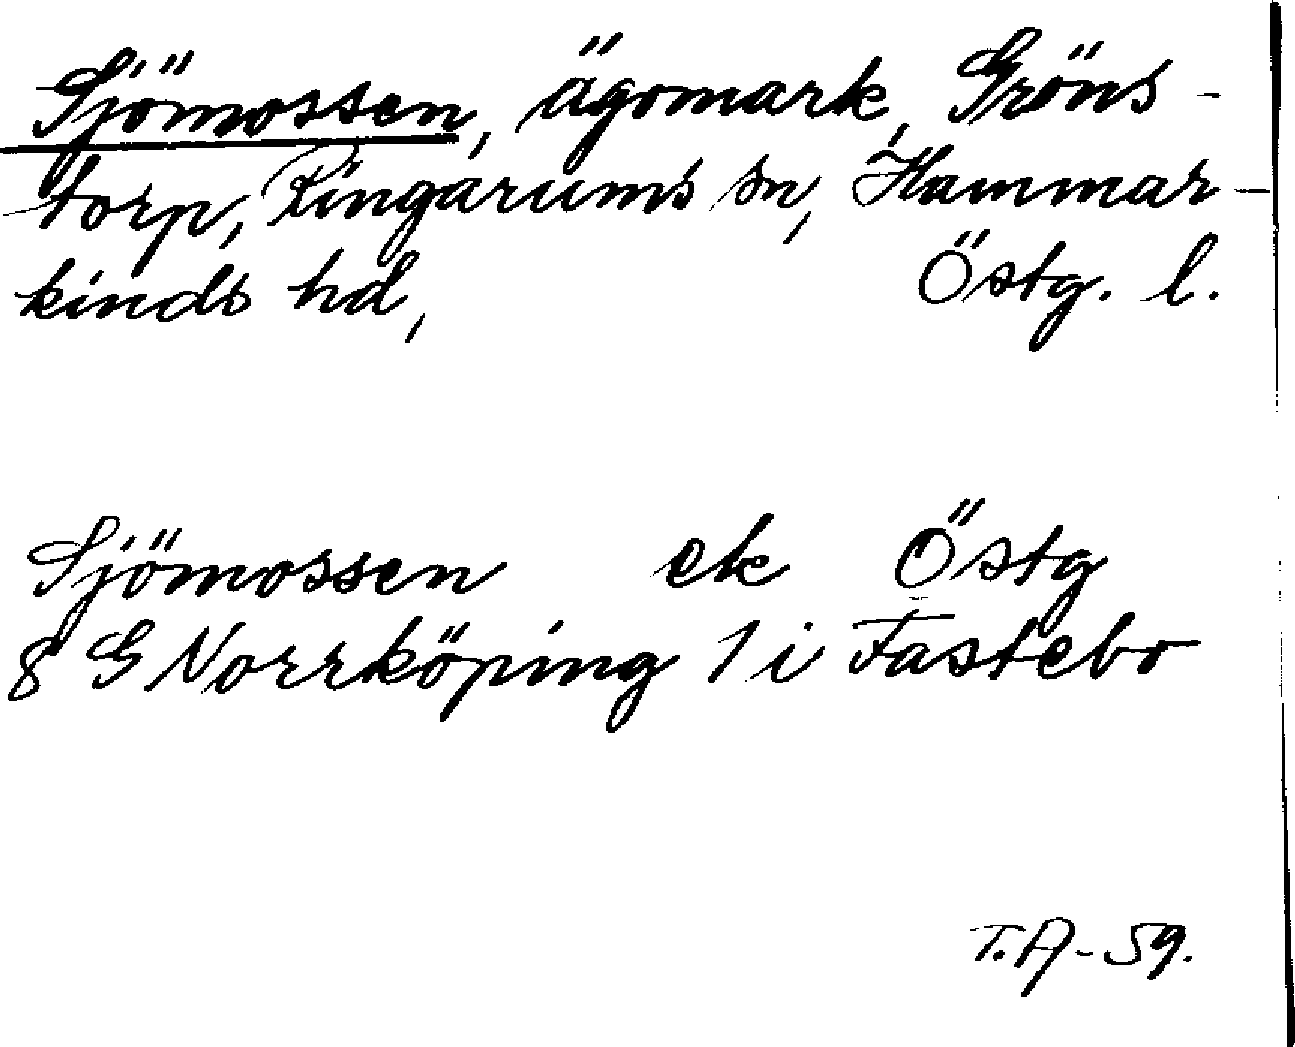 Sjömossen, ägomark, Gröns-
torp, Ringarums sn, Hammar-
kinds hd, Östg. l.
Sjömossen ek Östg
8 G Norrköping 1 i Fastebo
T.A-59.